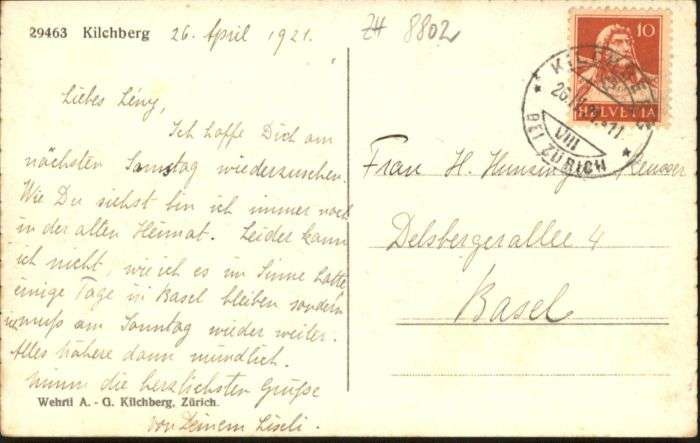 29463 Kilchberg 26. April 1921.
ZH 8802
Liebes Lény,
Ich hoffe Dich am
nächsten Samstag wiederzusehen.
Wie Du siehst bin ich immer noch
in der alten Heimat. Leider kann
ich nicht, wie ich es im Sinne hatte
einige Tage in Basel bleiben sondern
muß am Sonntag wieder weiter.
Alles nähere dann mündlich.
Nimm die herzlichsten Grüße
von Deinem Liseli.
Wehrli A. - G. Kilchberg, Zürich.
10
HELVETIA
KILCHBERG
VIII
BEI ZÜRICH
Frau H. Hunzinger
Delsbergerallee 4
Basel